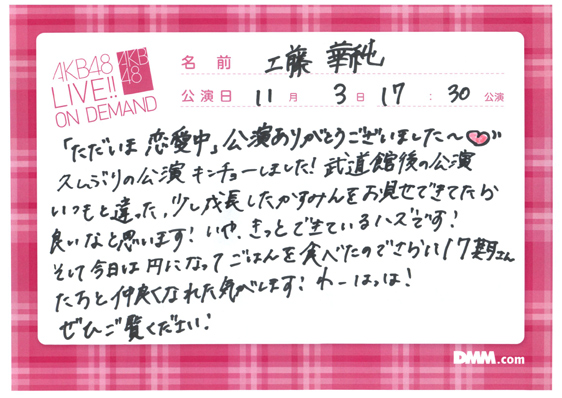 AKB48
LIVE!!
ON DEMAND
AKB
48
名前 工藤 華純
公演日 11月 3日 17:30公演
「ただいま 恋愛中」公演ありがとうございました〜
久しぶりの公演 キンチョーしました！武道館後の公演
いつもと違った、少し成長したかすみんをお見せできてたら
良いなと思います！いや、きっとできているハズです！
そして今日は円になってごはんを食べたのでさらに17期さん
たちと仲良くなれた気がします！わーはっは！
ぜひご覧ください！
DMM.com